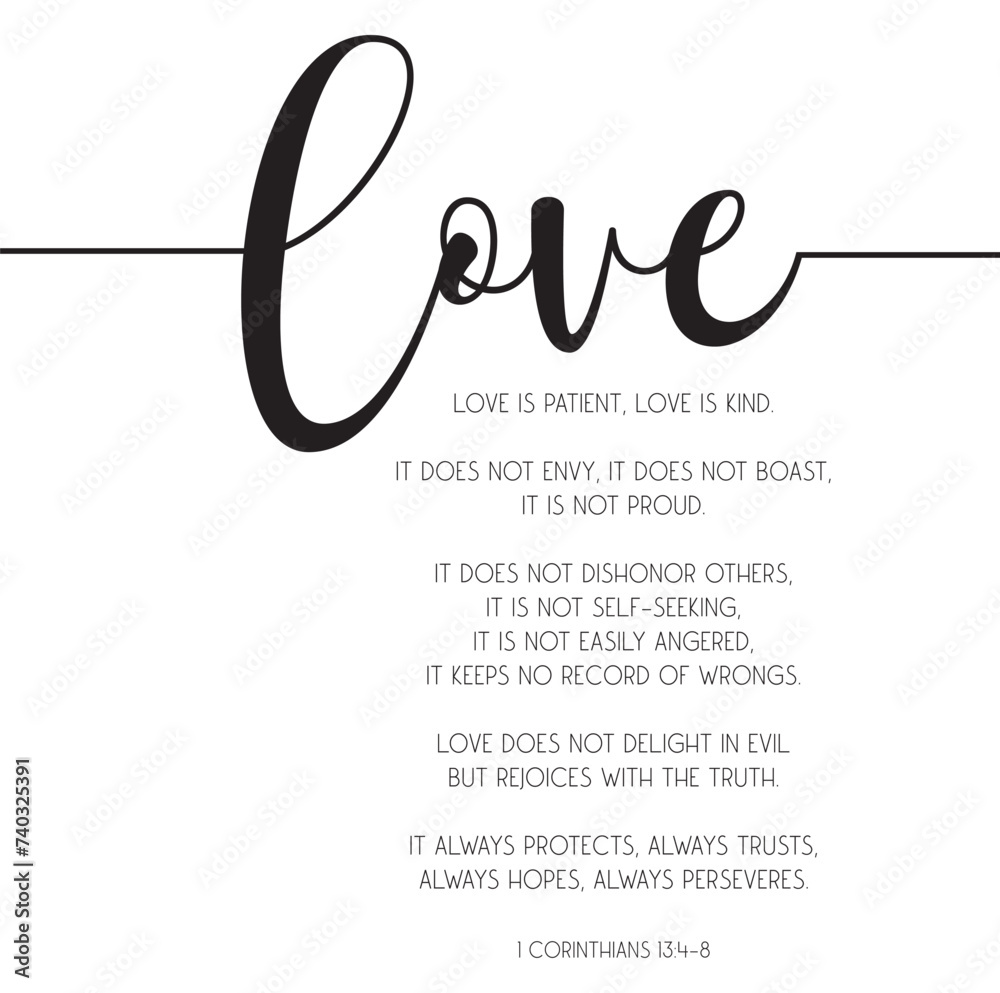 love
LOVE IS PATIENT, LOVE IS KIND.
IT DOES NOT ENVY, IT DOES NOT BOAST,
IT IS NOT PROUD.
IT DOES NOT DISHONOR OTHERS,
IT IS NOT SELF-SEEKING,
IT IS NOT EASILY ANGERED,
IT KEEPS NO RECORD OF WRONGS.
LOVE DOES NOT DELIGHT IN EVIL
BUT REJOICES WITH THE TRUTH.
IT ALWAYS PROTECTS, ALWAYS TRUSTS,
ALWAYS HOPES, ALWAYS PERSEVERES.
1 CORINTHIANS 13:4-8
Adobe Stock | #740325391